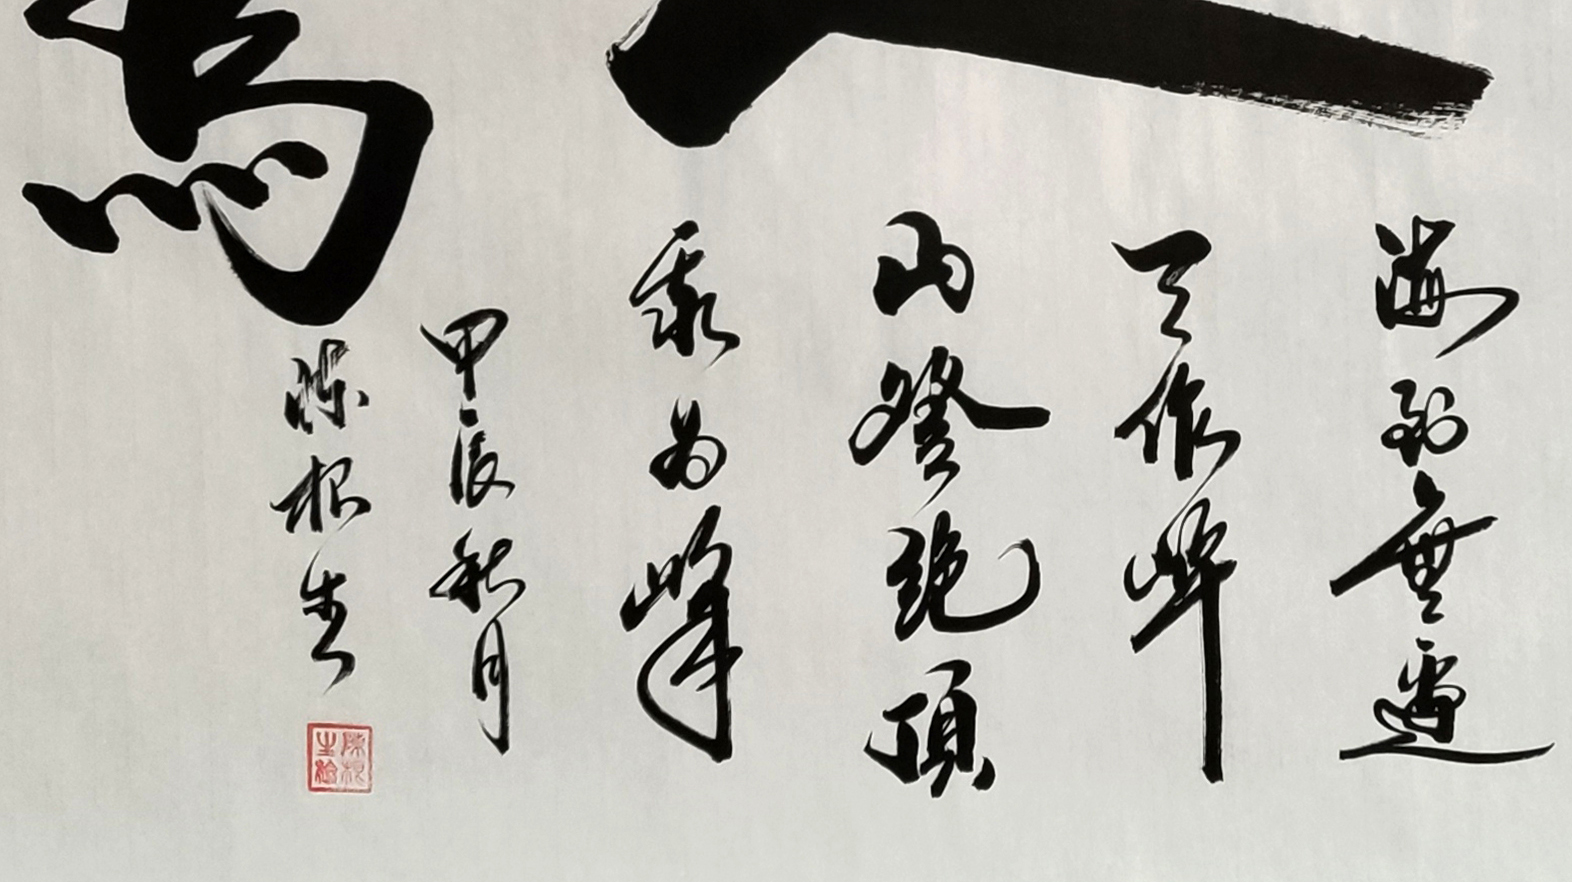 海到無邊
天作岸
山登絕頂
我為峰
甲辰秋月
陳根生
為
陳根生